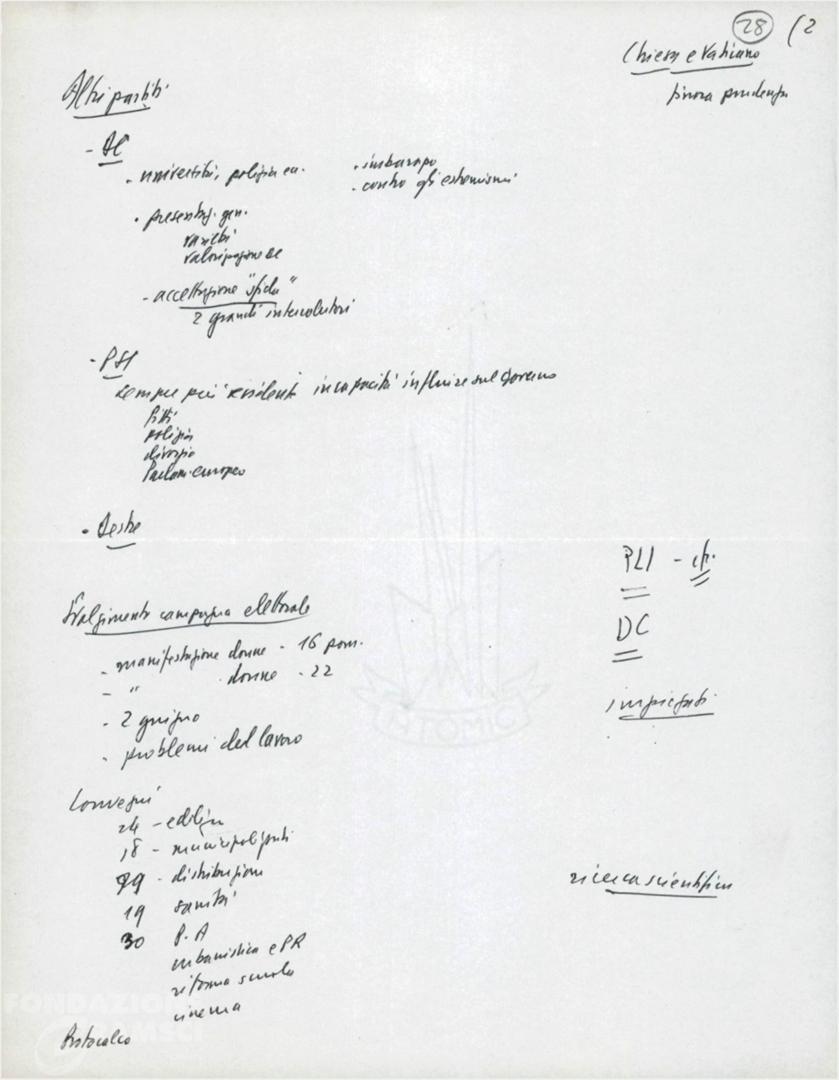 28 (2
Chiesa e Vaticano
finora prudenza
Altri partiti
- DC
. università, polizia ecc.
. imbarazzo
. contro gli estremismi
. presentaz. gen.
varietà
valorizzazione DC
- accettazione "sfida"
2 grandi interlocutori
- PSI
sempre più evidente incapacità influire sul Governo
fitti
polizia
divorzio
Parlam. europeo
. Destre
PLI - ch.
DC
Svolgimento campagna elettorale
- manifestazione donne - 16 pom.
- " donne - 22
. 2 giugno
. problemi del lavoro
impiegati
Convegni
24 - edilizia
18 - municipalizzati
29 - distribuzione
19 sanità
30 P.A
urbanistica e PR
riforma scuola
cinema
ricerca scientifica
Rotocalco
ATOMIC
FONDAZIONE
GRAMSCI